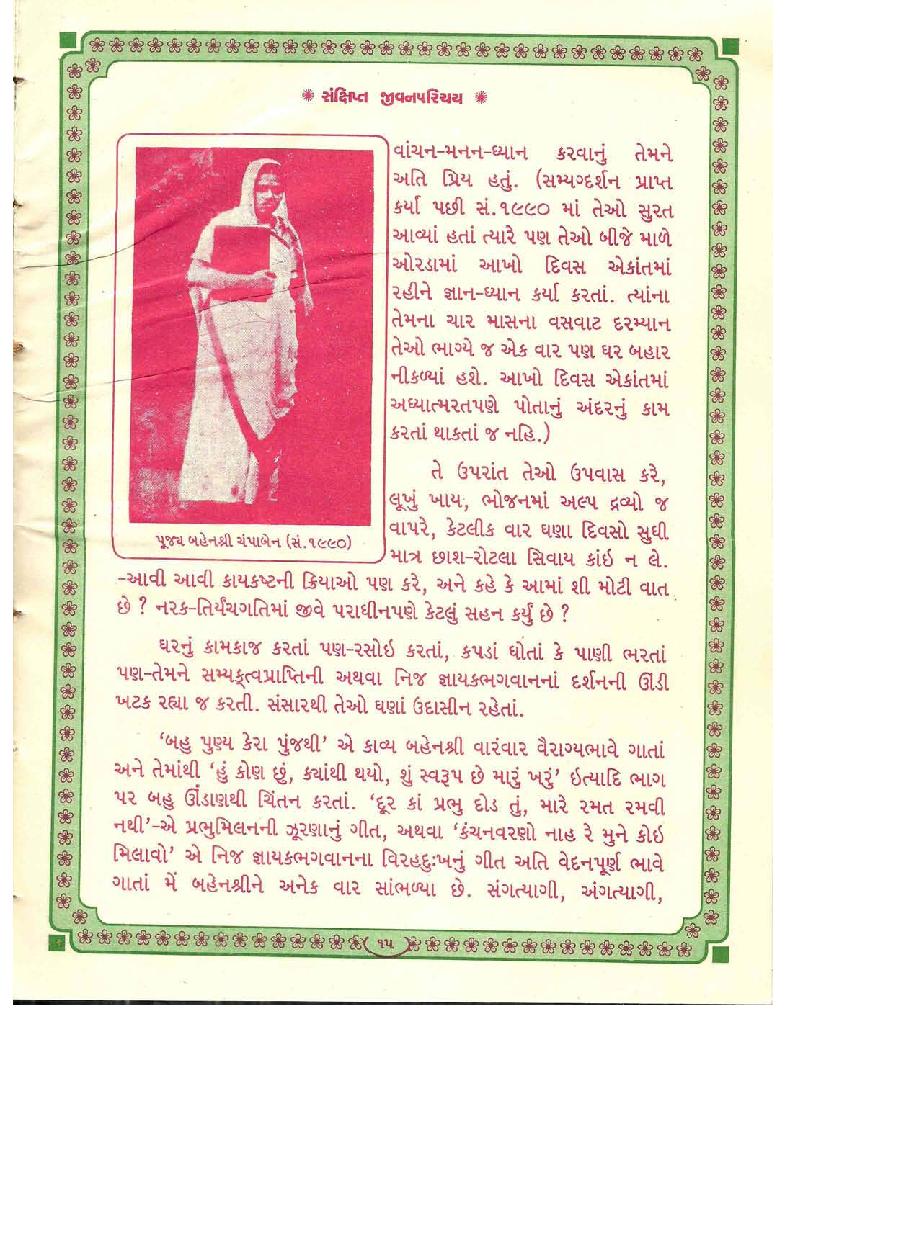 ❋ સંક્ષિપ્ત જીવનપરિચય ❋
વાંચન-મનન-ધ્યાન કરવાનું તેમને
અતિ પ્રિય હતું. (સમ્યગ્દર્શન પ્રાપ્ત
કર્યા પછી સં.૧૯૯૦ માં તેઓ સુરત
આવ્યાં હતાં ત્યારે પણ તેઓ બીજે માળે
ઓરડામાં આખો દિવસ એકાંતમાં
રહીને જ્ઞાન-ધ્યાન કર્યા કરતાં. ત્યાંના
તેમના ચાર માસના વસવાટ દરમ્યાન
તેઓ ભાગ્યે જ એક વાર પણ ઘર બહાર
નીકળ્યાં હશે. આખો દિવસ એકાંતમાં
અધ્યાત્મરતપણે પોતાનું અંદરનું કામ
કરતાં થાકતાં જ નહિ.)
તે ઉપરાંત તેઓ ઉપવાસ કરે,
લૂખું ખાય, ભોજનમાં અલ્પ દ્રવ્યો જ
વાપરે, કેટલીક વાર ઘણા દિવસો સુધી
માત્ર છાશ-રોટલા સિવાય કાંઇ ન લે.
પૂજ્ય બહેનશ્રી ચંપાબેન (સં.૧૯૯૦)
-આવી આવી કાયકષ્ટની ક્રિયાઓ પણ કરે, અને કહે કે આમાં શી મોટી વાત
છે ? નરક-તિર્યંચગતિમાં જીવે પરાધીનપણે કેટલું સહન કર્યું છે ?
ઘરનું કામકાજ કરતાં પણ-રસોઇ કરતાં, કપડાં ધોતાં કે પાણી ભરતાં
પણ-તેમને સમ્યક્ત્વપ્રાપ્તિની અથવા નિજ જ્ઞાયકભગવાનનાં દર્શનની ઊંડી
ખટક રહ્યા જ કરતી. સંસારથી તેઓ ઘણાં ઉદાસીન રહેતાં.
‘બહુ પુણ્ય કેરા પુંજથી’ એ કાવ્ય બહેનશ્રી વારંવાર વૈરાગ્યભાવે ગાતાં
અને તેમાંથી ‘હું કોણ છું, ક્યાંથી થયો, શું સ્વરૂપ છે મારું ખરું’ ઇત્યાદિ ભાગ
પર બહુ ઊંડાણથી ચિંતન કરતાં. ‘દૂર કાં પ્રભુ દોડ તું, મારે રમત રમવી
નથી’-એ પ્રભુમિલનની ઝૂરણાનું ગીત, અથવા ‘કંચનવરણો નાહ રે મુને કોઇ
મિલાવો’ એ નિજ જ્ઞાયકભગવાનના વિરહદુઃખનું ગીત અતિ વેદનપૂર્ણ ભાવે
ગાતાં મેં બહેનશ્રીને અનેક વાર સાંભળ્યા છે. સંગત્યાગી, અંગત્યાગી,
૧૫